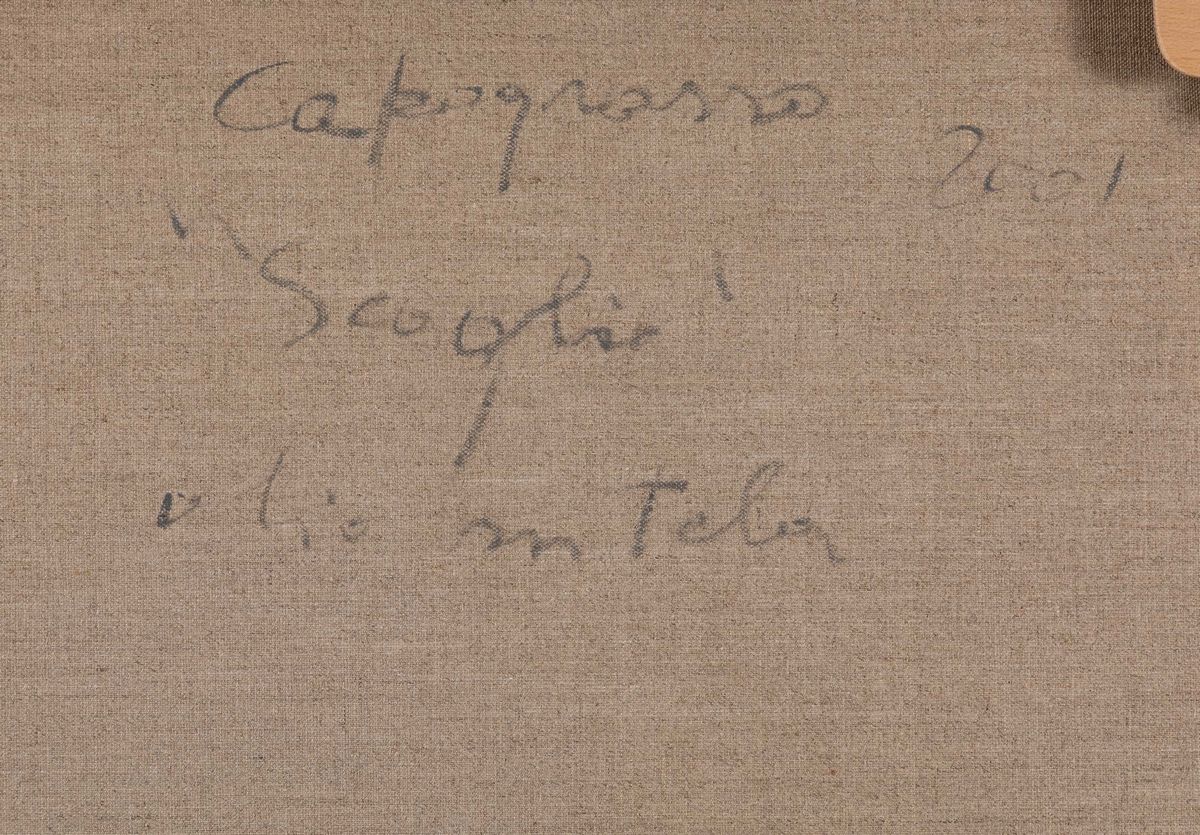 Capogrosso 2001
"Scoglio"
olio su Tela